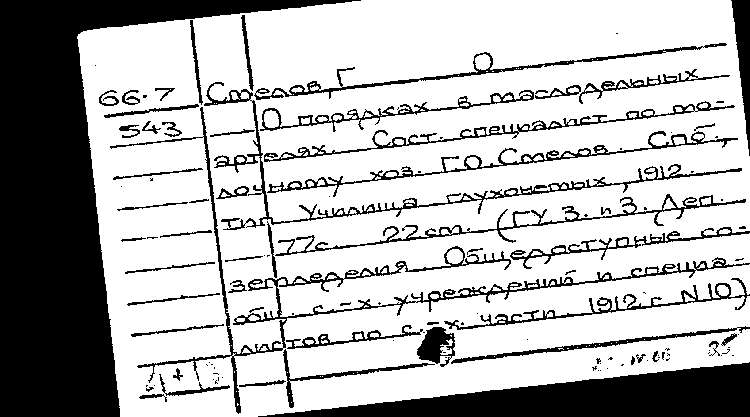 66.7 Стелов, Г О
543 О порядках в маслодельных
артелях. Сост. специалист по мо-
лочному хоз. Г.О. Стелов. Спб.,
тип Училища глухонемых, 1912.
77с. 22 см. (ГУ З. и З. Деп.
земледелия. Общедоступные со-
общ. с.-х. учреждений и специа-
листов по с.-х. части. 1912 г N 10)